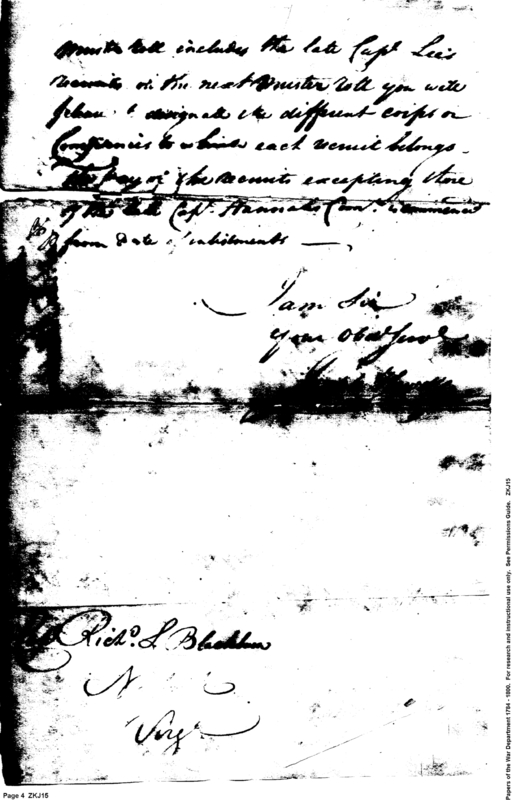 muster roll includes the late Capt. Lee's
recruits on the next muster roll you will
please to designate the different corps or
Companies to which each recruit belongs.
The pay of the recruits excepting those
of the late Capt. Hannahs Comy. is commenced
from date of inlistments
I am Sir
Your Obed Servt
Richd. L. Blackburn
Virga
Page 4 ZKJ15
Papers of the War Department 1784 - 1800. For research and instructional use only. See Permissions Guide. ZKJ15